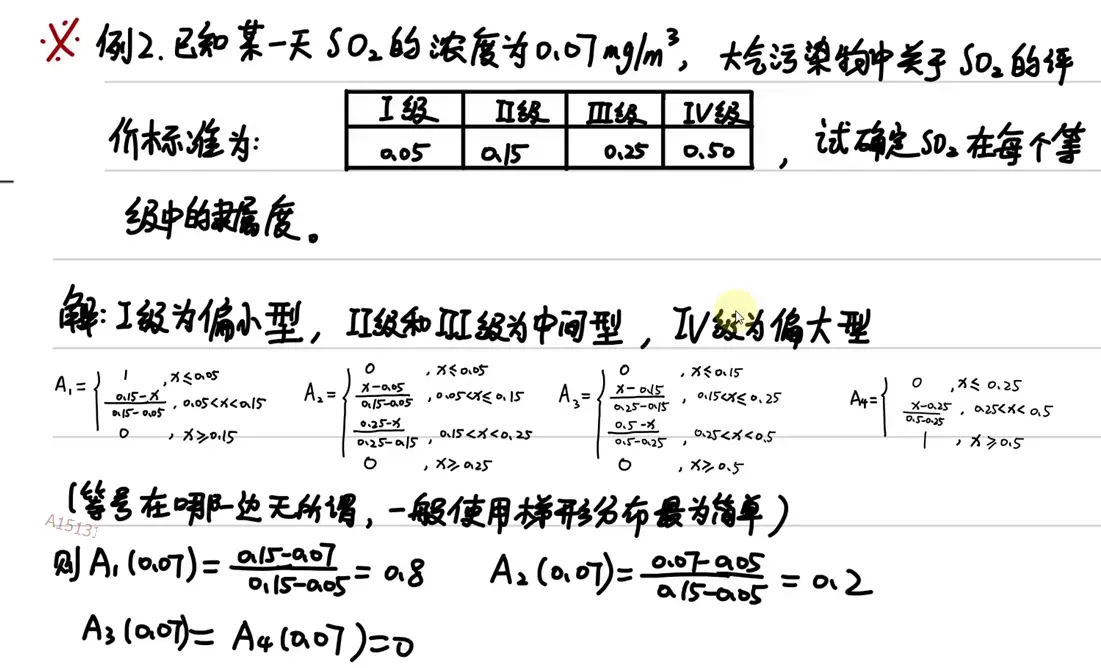 ※ 例2. 已知某一天 SO₂的浓度为0.07mg/m³, 大气污染物中关于 SO₂的评
价标准为: , 试确定SO₂在每个等
I级 II级 III级 IV级
0.05 0.15 0.25 0.50
级中的隶属度。
解: I级为偏小型, II级和III级为中间型, IV级为偏大型
A₁= { 1 , x≤0.05
(0.15-x)/(0.15-0.05) , 0.05<x<0.15
0 , x≥0.15
A₂= { 0 , x≤0.05
(x-0.05)/(0.15-0.05) , 0.05<x≤0.15
(0.25-x)/(0.25-0.15) , 0.15<x<0.25
0 , x≥0.25
A₃= { 0 , x≤0.15
(x-0.15)/(0.25-0.15) , 0.15<x≤0.25
(0.5-x)/(0.5-0.25) , 0.25<x<0.5
0 , x≥0.5
A₄= { 0 , x≤0.25
(x-0.25)/(0.5-0.25) , 0.25<x<0.5
1 , x≥0.5
(等号在哪一边无所谓, 一般使用梯形分布最为简单)
则 A₁(0.07)= (0.15-0.07)/(0.15-0.05) = 0.8 A₂(0.07)= (0.07-0.05)/(0.15-0.05) = 0.2
A₃(0.07)= A₄(0.07)=0